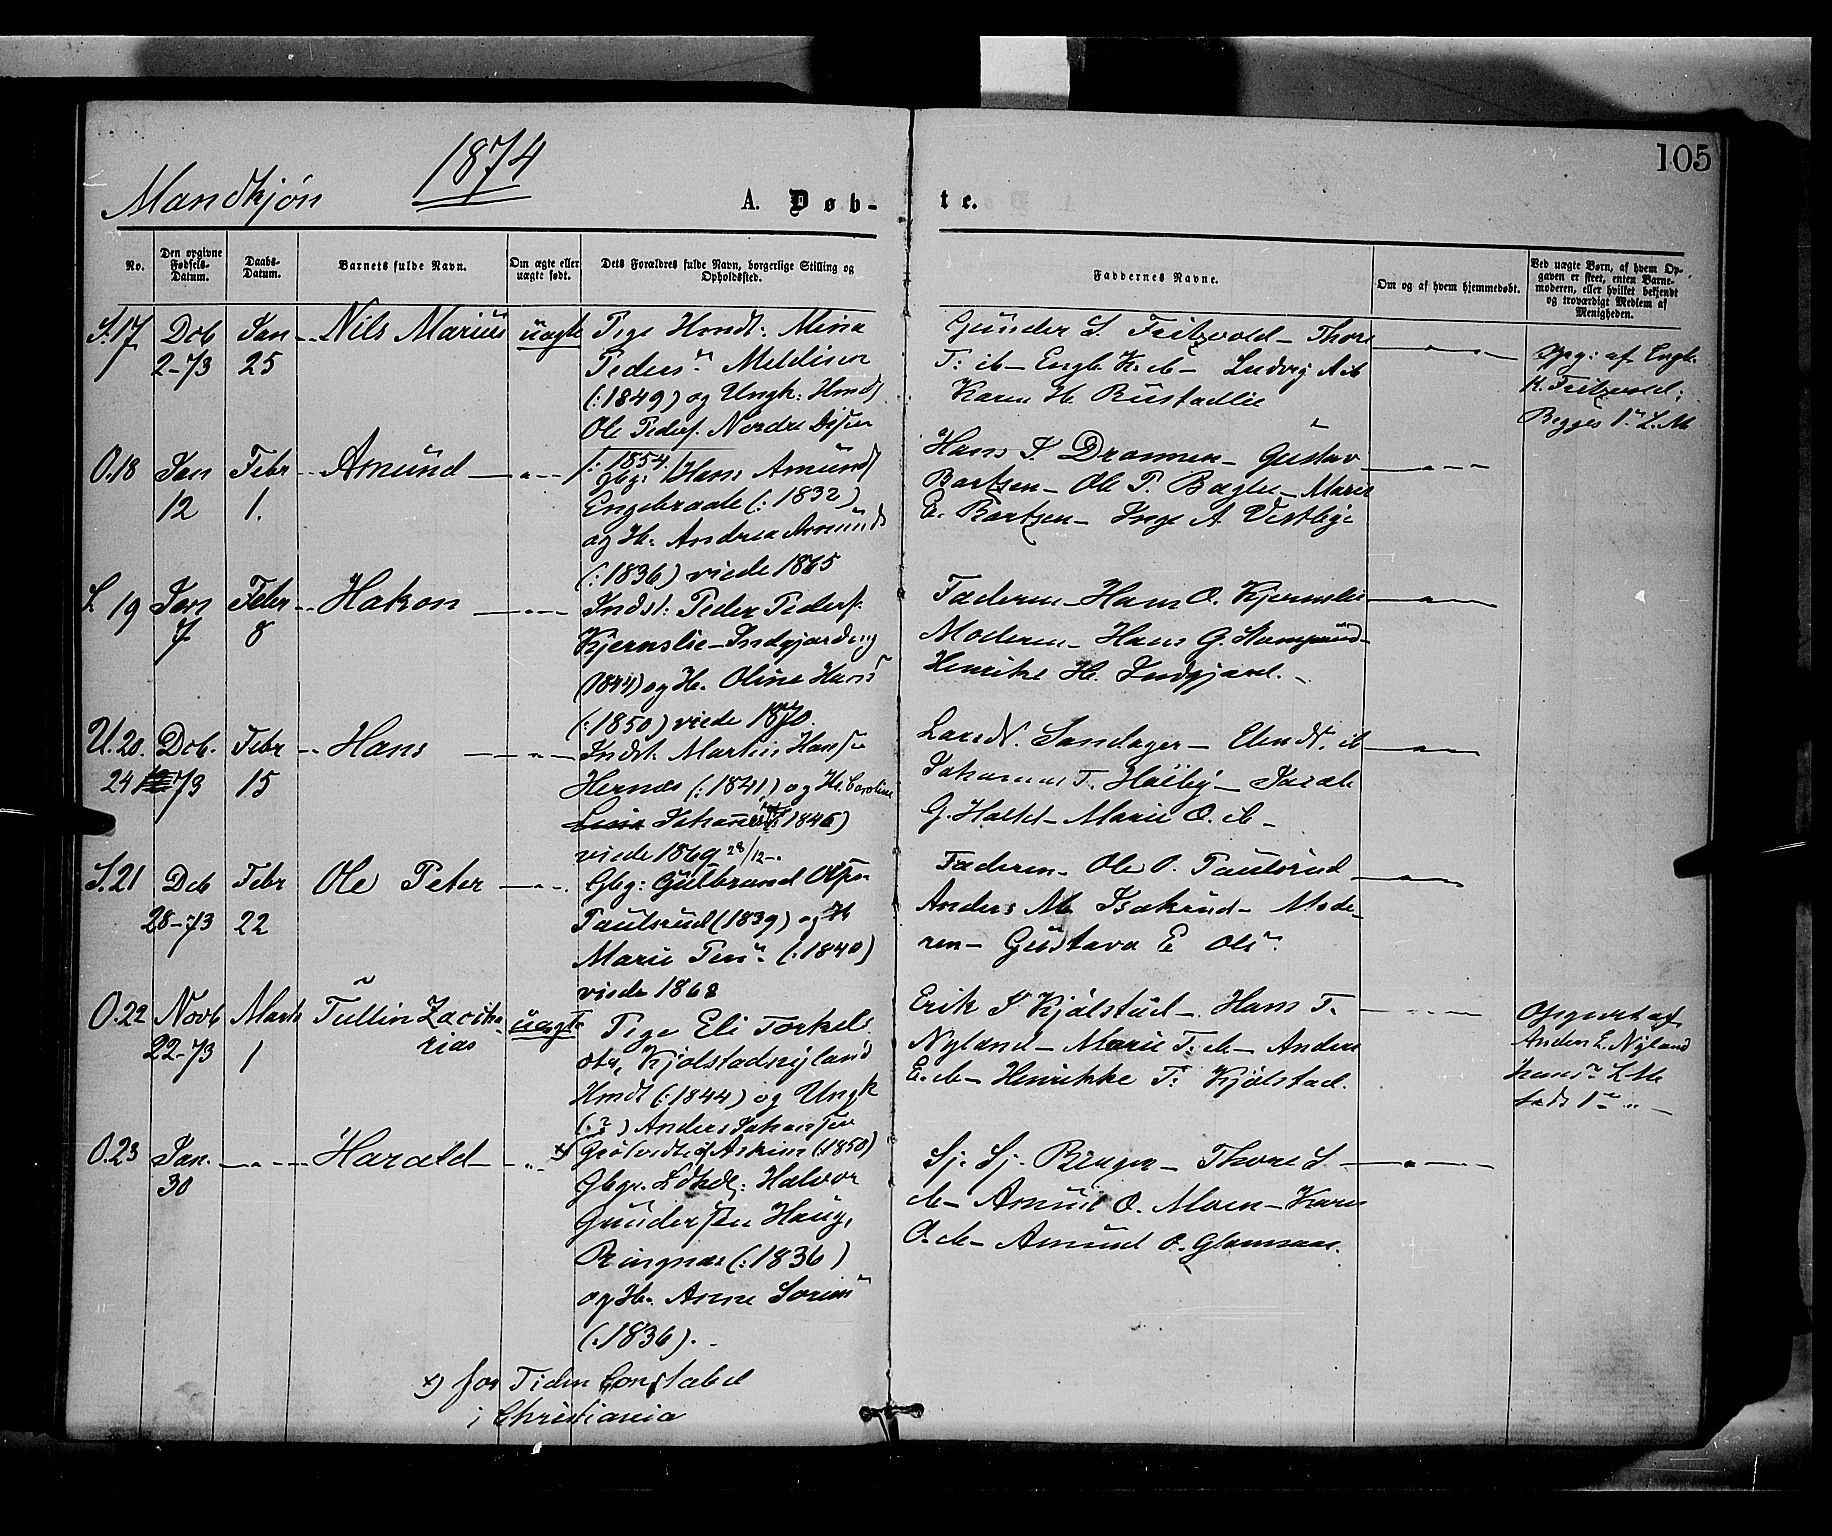 105
1874
Mandkjøn
A. Døb-
te.
No.
Den opgivne Fødsels-Datum.
Daabs-Datum.
Barnets fulde Navn.
Om ægte eller uægte født.
Dets Forældres fulde Navn, borgerlige Stilling og Opholdssted.
Faddernes Navne.
Om og af hvem hjemmedøbt.
Ved uægte Børn, af hvem Opgaven er skeet, enten Barnemoderen, eller hvilket bekjendt og troværdigt Medlem af Menigheden.
S. 17 Dcb 2-73 Jan 25 Nils Marius uægte
Pige Hmdt: Mina
Peders Meldisen
(:1849) og Ungk: Hmdt
Ole Peders. Nordre Disen
(: 1854.
Gunder S. Fritzvold - Thore
T: ib - Engb. K. ib - Ludvig A ib
Karen H. Rustadlie
Opg: af Engb.
K. Fritzvold;
Begges 1ste L.M.
O. 18 Jan 12 Febr 1. Amund
Gbg: Hans Amunds
Engebraate (: 1832)
og H. Andrea Amunds
(:1836) viede 1865
Hans J. Drommen - Gustav
Bartsen - Ole P. - Maren
E. Bartsen - Inge A Vestbye
S. 19 Jan 7 Febr 8 Hakon
Indst: Peder Peders.
Kjernslie - Indgjarding
(1844) og H. Oline Hans
(:1850) viede 1870.
Faderen - Hans O. Kjernslie
Moderen - Hans G.
Henrike H. Indgjard.
U. 20. Dcb. 24 73 Febr 15 Hans
Indst. Martin Hansen
Hernæs (:1841) og H. Caroline
Johannes (1846)
viede 1869 28/12.
Lars N. Sandager - N. ib
Johannes T. Holby - Jacob
G. Holtet - Marie O. ib -
S. 21 Dcb 28-73 Febr 22 Ole Peter
Gbg: Gulbrand Ols.
Paulsrud (1839) og H
Marie Pens (:1840)
viede 1868
Faderen - Ole O. Paulsrud
Anders M. Isakrud - Mode-
ren - Gustava E. Ols.
O. 22 Novb 22-73 Marts 1 Tullin Zacha-
rias uægte
Pige Eli Torkels
dtr, Kjølstadnyland
Hmdt (:1844) og Ungk
(:?) Anders Johansen
Grølvedt i Askim (:1850)
Erik J Kjølstad - Hans T.
Nyland - Marie T. ib - Anders
E. ib - Henrikke T: Kjølstad.
Opgivet af
Anders E. Nyland
hans L.M.
O. 23 Jan. 30 Harald
Gbgr. Halvor
Gundersen Haug,
Ringnæs (:1836)
og H. Anne Sørens
(:1836).
Sj. Sj. Berger - Thore S
ib - Amund O. Moen - Karen
O. ib - Amund O. Glomsaas.
x) for Tiden Constabel
i Christiania